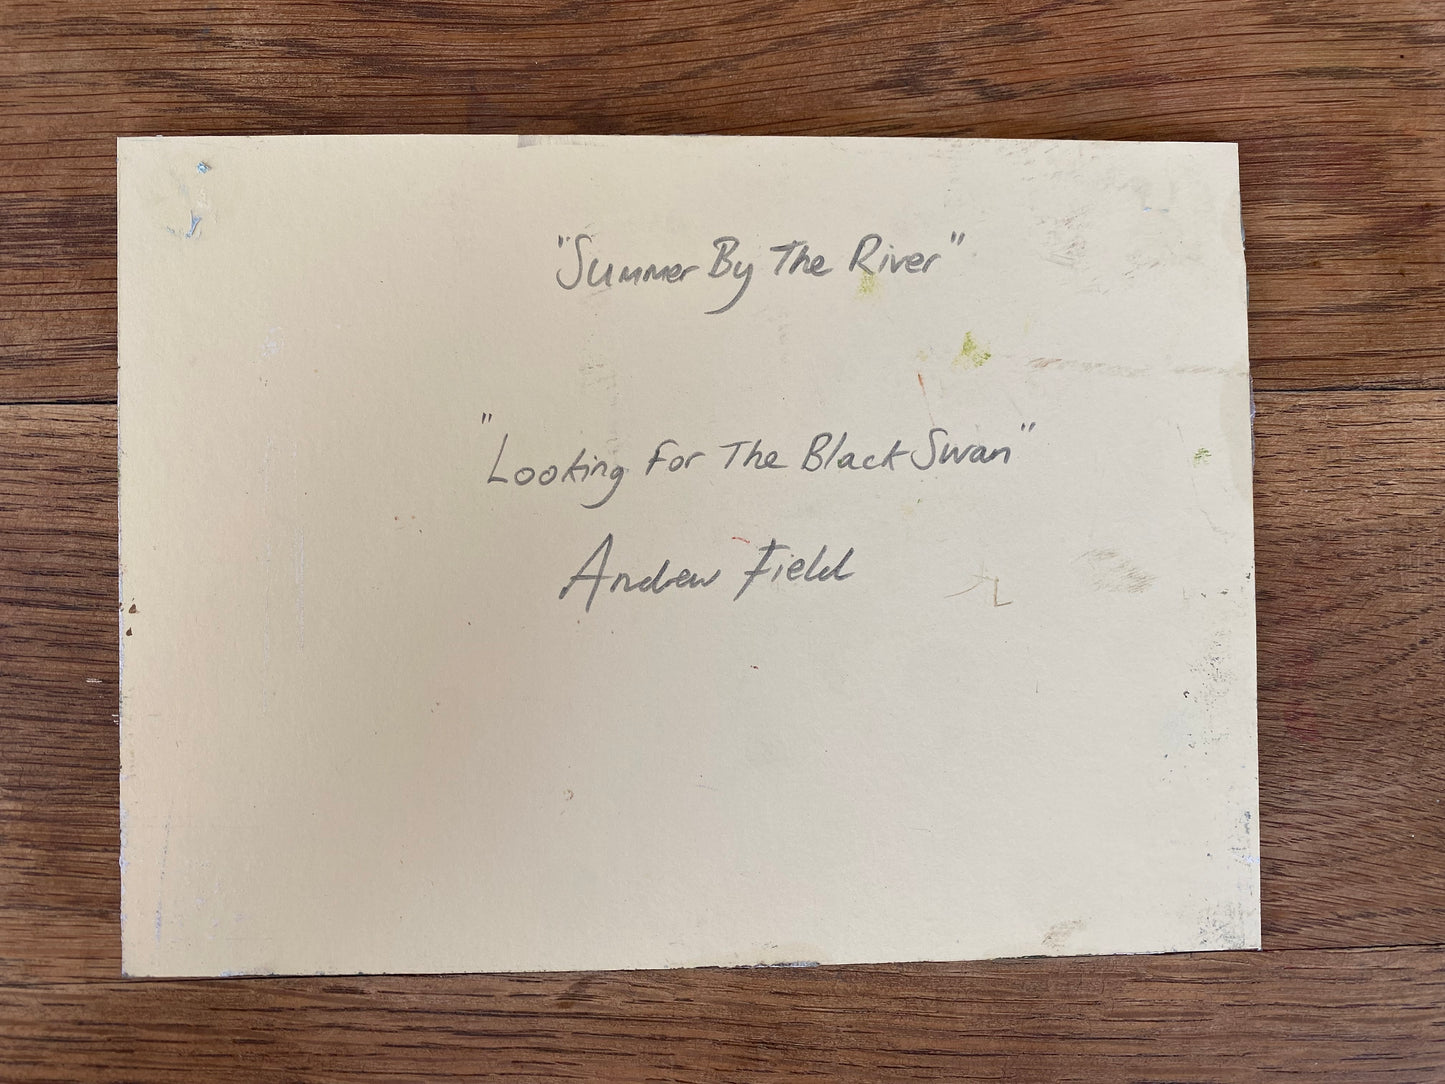 "Summer By The River"
"Looking For The Black Swan"
Andrew Field